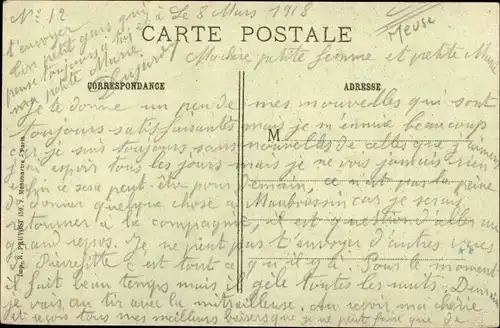 N° 12
Le 8 Mars 1918
Meuse
t'envoyer
ton petit gars qui
pense toujours à toi
petite Marie.
CARTE POSTALE
Ma chère petite femme et petite
CORRESPONDANCE
ADRESSE
Je te donne un peu de mes nouvelles qui sont
toujours satisfaisantes mais je m'ennuie beaucoup
car je suis toujours sans nouvelles de celles que j'aime
j'ai espoir tous les jours mais je ne vois jamais rien
enfin ce sera peut-être pour demain, ce n'est pas la peine
de donner quelque chose à Mauboussin car je serai
retourner à la compagnie, il est question d'aller au
grand repos. Je ne peux pas t'envoyer d'autres vues
Pierrefitte c'est tout ce qu'il y a. Pour le moment
il fait beau temps mais il gèle toutes les nuits. Demain
je vais au tir avec la mitrailleuse. Au revoir ma chérie
et reçois tous mes meilleurs baisers que je ne peux faire que de
M
Imp. R. PRUDENT 159, r. Montmartre - Paris